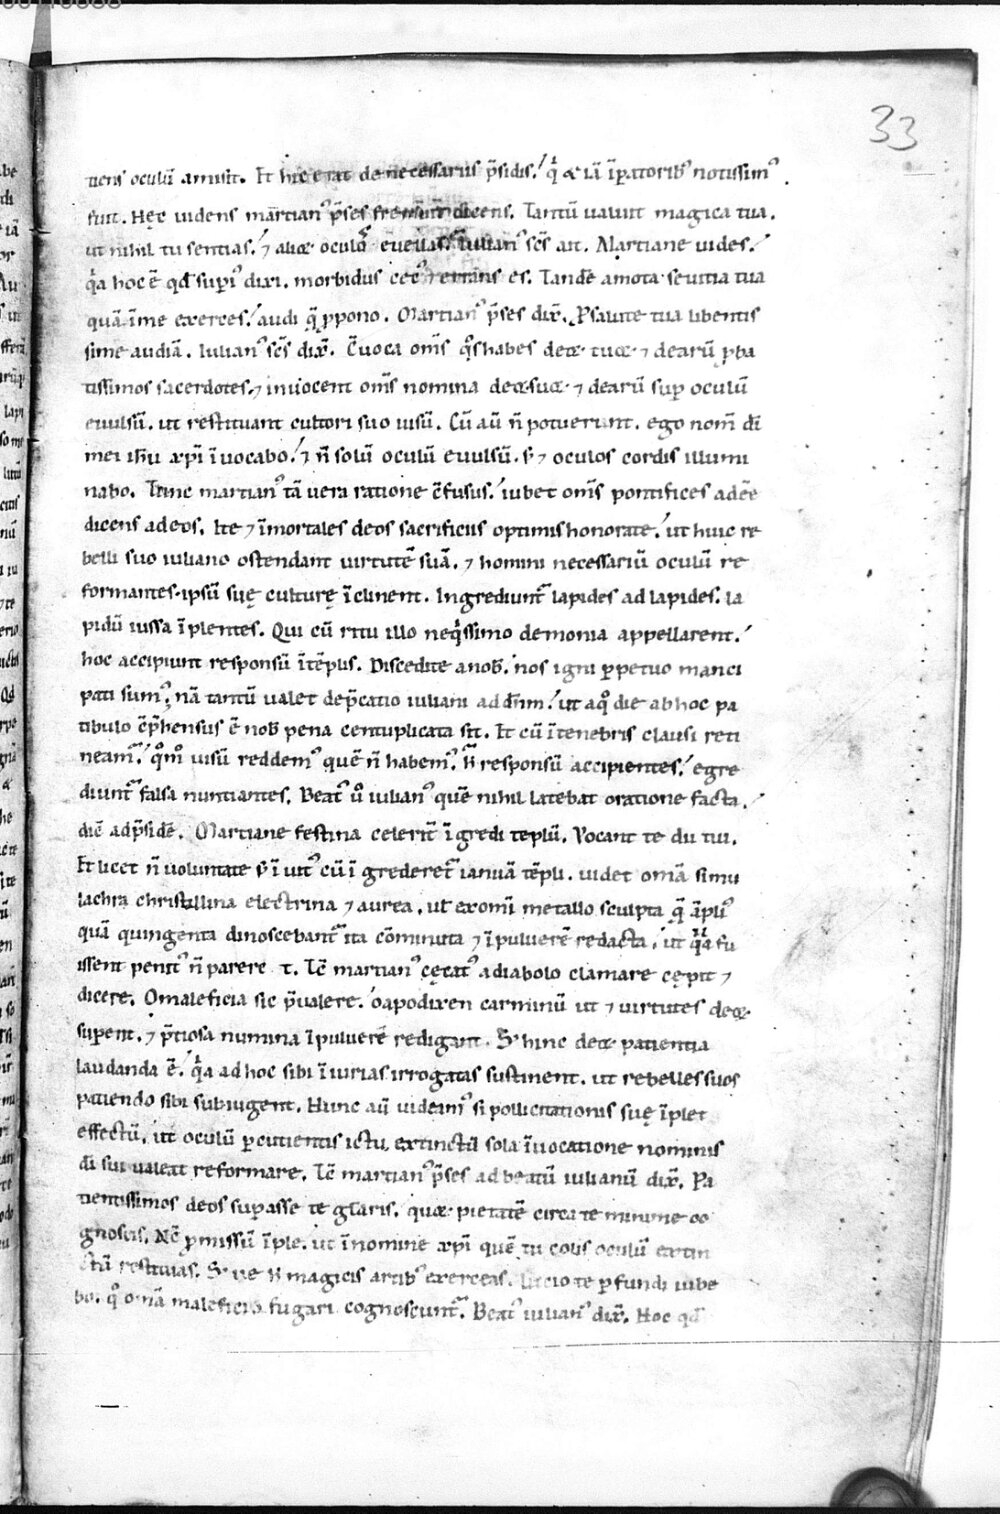 33
tiens oculū amisit. Et hic erat de necessariis p̄sidis. qͥ & iā īp̄atorib᷒ notissim᷒
fuit. Hęc videns martian᷒ p̄ses dicens. Tantū valuit magica tua.
ut nihil tu sentias. ⁊ aliæ oculos iulian᷒ sc̄s ait. Martiane vides.
qͥa hoc ē qd̄ supi᷒ dixi. morbidus cec᷒ ⁊ errans es. Tandē amota sevitia tua
quā īme exerces. audi q̄ ꝓpono. Martian᷒ p̄ses dix̄. Psalute tua libentis
sime audiā. Iulian᷒ sc̄s dix̄. Evoca om̄s qͦs habes deæ tuæ ⁊ dearū ꝓba
tissimos sacerdotes. ⁊ invocent om̄s nomina deæ suæ ⁊ dearū sup oculū
evulsū. ut restituant cultori suo visū. Cū aū n̄ potuerint. ego nom̄ dī
mei ih̄u xp̄i īvocabo. ⁊ n̄ solū oculū evulsū. s; ⁊ oculos cordis illumi
nabo. Tunc martian᷒ tā vera ratione c̄fusus. iubet om̄s pontifices adēe
dicens ad eos. Ite ⁊ īmortales deos sacrificiis optimis honorate. ut huic re
belli suo iuliano ostendant virtutē suā. ⁊ homini necessariū oculū re
formantes. ipsū suę culturę īclinent. Ingrediunt᷑ lapides ad lapides. la
pidū iussa īplentes. Qui cū ritu illo neqͥssimo demonia appellarent.
hoc accipiunt responsū ī tēplis. Discedite a nob̄. nos igni ꝑpetuo manci
pati sum᷒. nā tantū valet dep̄catio iuliani ad dn̄m. ut a qͦ die ab hoc pa
tibulo c̄p̄hensus ē nob̄ pena centuplicata sit. Et cū ī tenebris clausi reti
neam᷒. qͦm̊ visū reddem᷒ quē n̄ habem᷒. H̄ responsū accipientes. egre
diunt᷑ falsa nuntiantes. Beat᷒ v̊ iulian᷒ quē nihil latebat oratione facta.
dix̄ ad p̄sidē. Martiane festina celerit̄ īgredi tēplū. Vocant te dii tui.
Et licet n̄ voluntate s; īvit᷒ cū īgrederet᷑ ianuā tēpli. videt om̄a simu
lachra christallina electrina ⁊ aurea. vel ex om̄i metallo sculpta q̄ āpli᷒
quā quingenta dinoscebant᷑ ita cōminuta ⁊ ī pulverē redacta. ut qͣsi fu
issent penit᷒ n̄ parere t. Tc̄ martian᷒ cęcat᷒ a diabolo clamare cępit ⁊
dicere. O maleficia sic p̄valere. o apodixen carminū ut ⁊ virtutes deæ
suꝑent. ⁊ p̄tiosa numina ī pulverē redigant. S; hinc deæ patientia
laudanda ē. qͥa ad hoc sibi īiurias irrogatas sustinent. ut rebelles suos
patiendo sibi subiugent. Hunc aū videam᷒ si pollicitationis suę īplet
effectū. ut oculū ꝑcutientis ictu. extinctū sola īvocatione nominis
dī sui valeat reformare. Tc̄ martian᷒ p̄ses ad beatū iulianū dix̄. Pa
tientissimos deos suꝑasse te gl̄aris. quæ pietatē circa te minime co
gnoscis. Nc̄ ꝓmissū īple. ut ī nomine xp̄i quē tu colis oculū extin
ctū restituas. S; ne h̄ magicis artib᷒ exerceas. te ꝑfundi iube
bo. qͦ om̄a maleficia fugari cognoscunt᷑. Beat᷒ iulian᷒ dix̄. Hoc qd̄